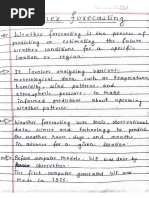 forecasting
→ Weather forecasting is the process of
predicting or estimating the future
weather conditions for a specific
location or region.
→ It involves analyzing various
meteorological data, such as temperature,
humidity, wind patterns and
atmospheric pressure, to make
informed predictions about upcoming
weather patterns.
→ Weather forecasting uses tools observational
data, science and technology to predict
the weather hours, days and months
In advance for a given location.
→ Before computer models, WF was done by
observation
The first computer generated WF was
made in 1955.